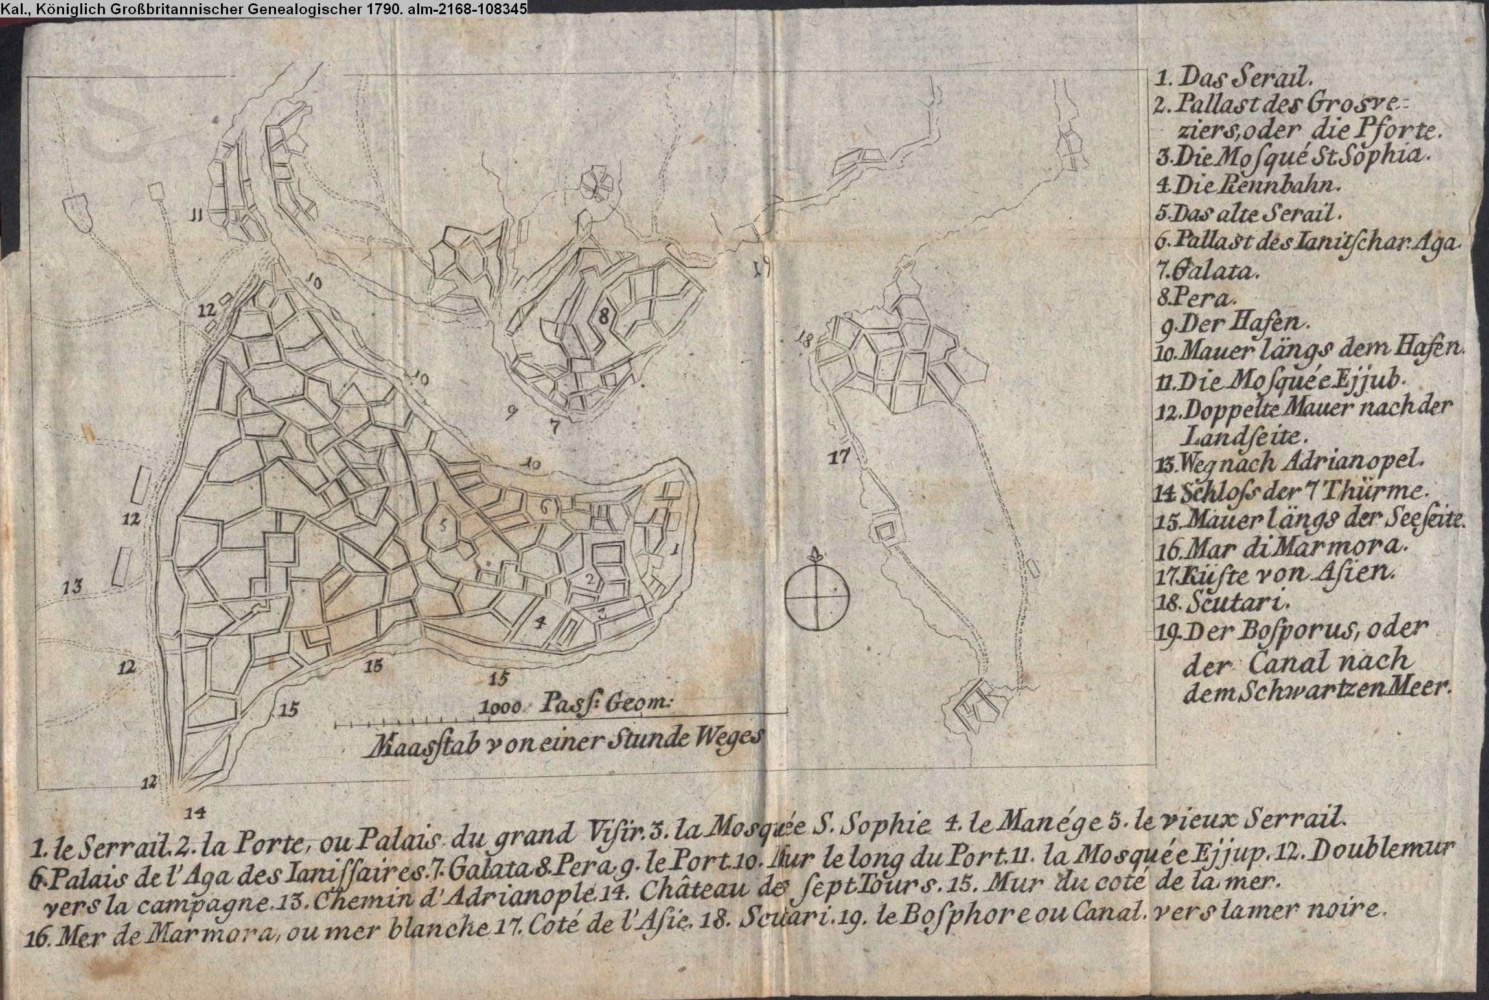 Kal., Königlich Großbritannischer Genealogischer 1790. alm-2168-108345
1. Das Serail.
2. Pallast des Grosve=
ziers, oder die Pforte.
3. Die Moſqué St. Sophia.
4. Die Rennbahn.
5. Das alte Serail.
6. Pallast des Ianitſchar. Aga.
7. Galata.
8. Pera.
9. Der Hafen.
10. Mauer längs dem Hafen.
11. Die Moſquée Ejjub.
12. Doppelte Mauer nach der
Landſeite.
13. Weg nach Adrianopel.
14. Schloſs der 7 Thürme.
15. Mauer längs der Seeſeite.
16. Mar di Marmora.
17. Küſte von Aſien.
18. Scutari.
19. Der Boſporus, oder
der Canal nach
dem Schwartzen Meer.
11
10
12
8
19
18
10
9
7
10
17
12
5
6
1
13
2
3
4
12
15
15
15
12
14
1000. Paſſ: Geom:
Maasſtab von einer Stunde Weges
1. le Serrail. 2. la Porte, ou Palais du grand Viſir. 3. la Mosquée S. Sophie 4. le Manége 5. le vieux Serrail.
6. Palais de l'Aga des Ianiſſaires. 7. Galata 8. Pera. 9. le Port. 10. Mur le long du Port. 11. la Mosquée Ejjup. 12. Double mur
vers la campagne. 13. Chemin d'Adrianople. 14. Château des ſept Tours. 15. Mur du coté de la mer.
16. Mer de Marmora, ou mer blanche 17. Coté de l'Aſie. 18. Scutari. 19. le Boſphore ou Canal. vers la mer noire.